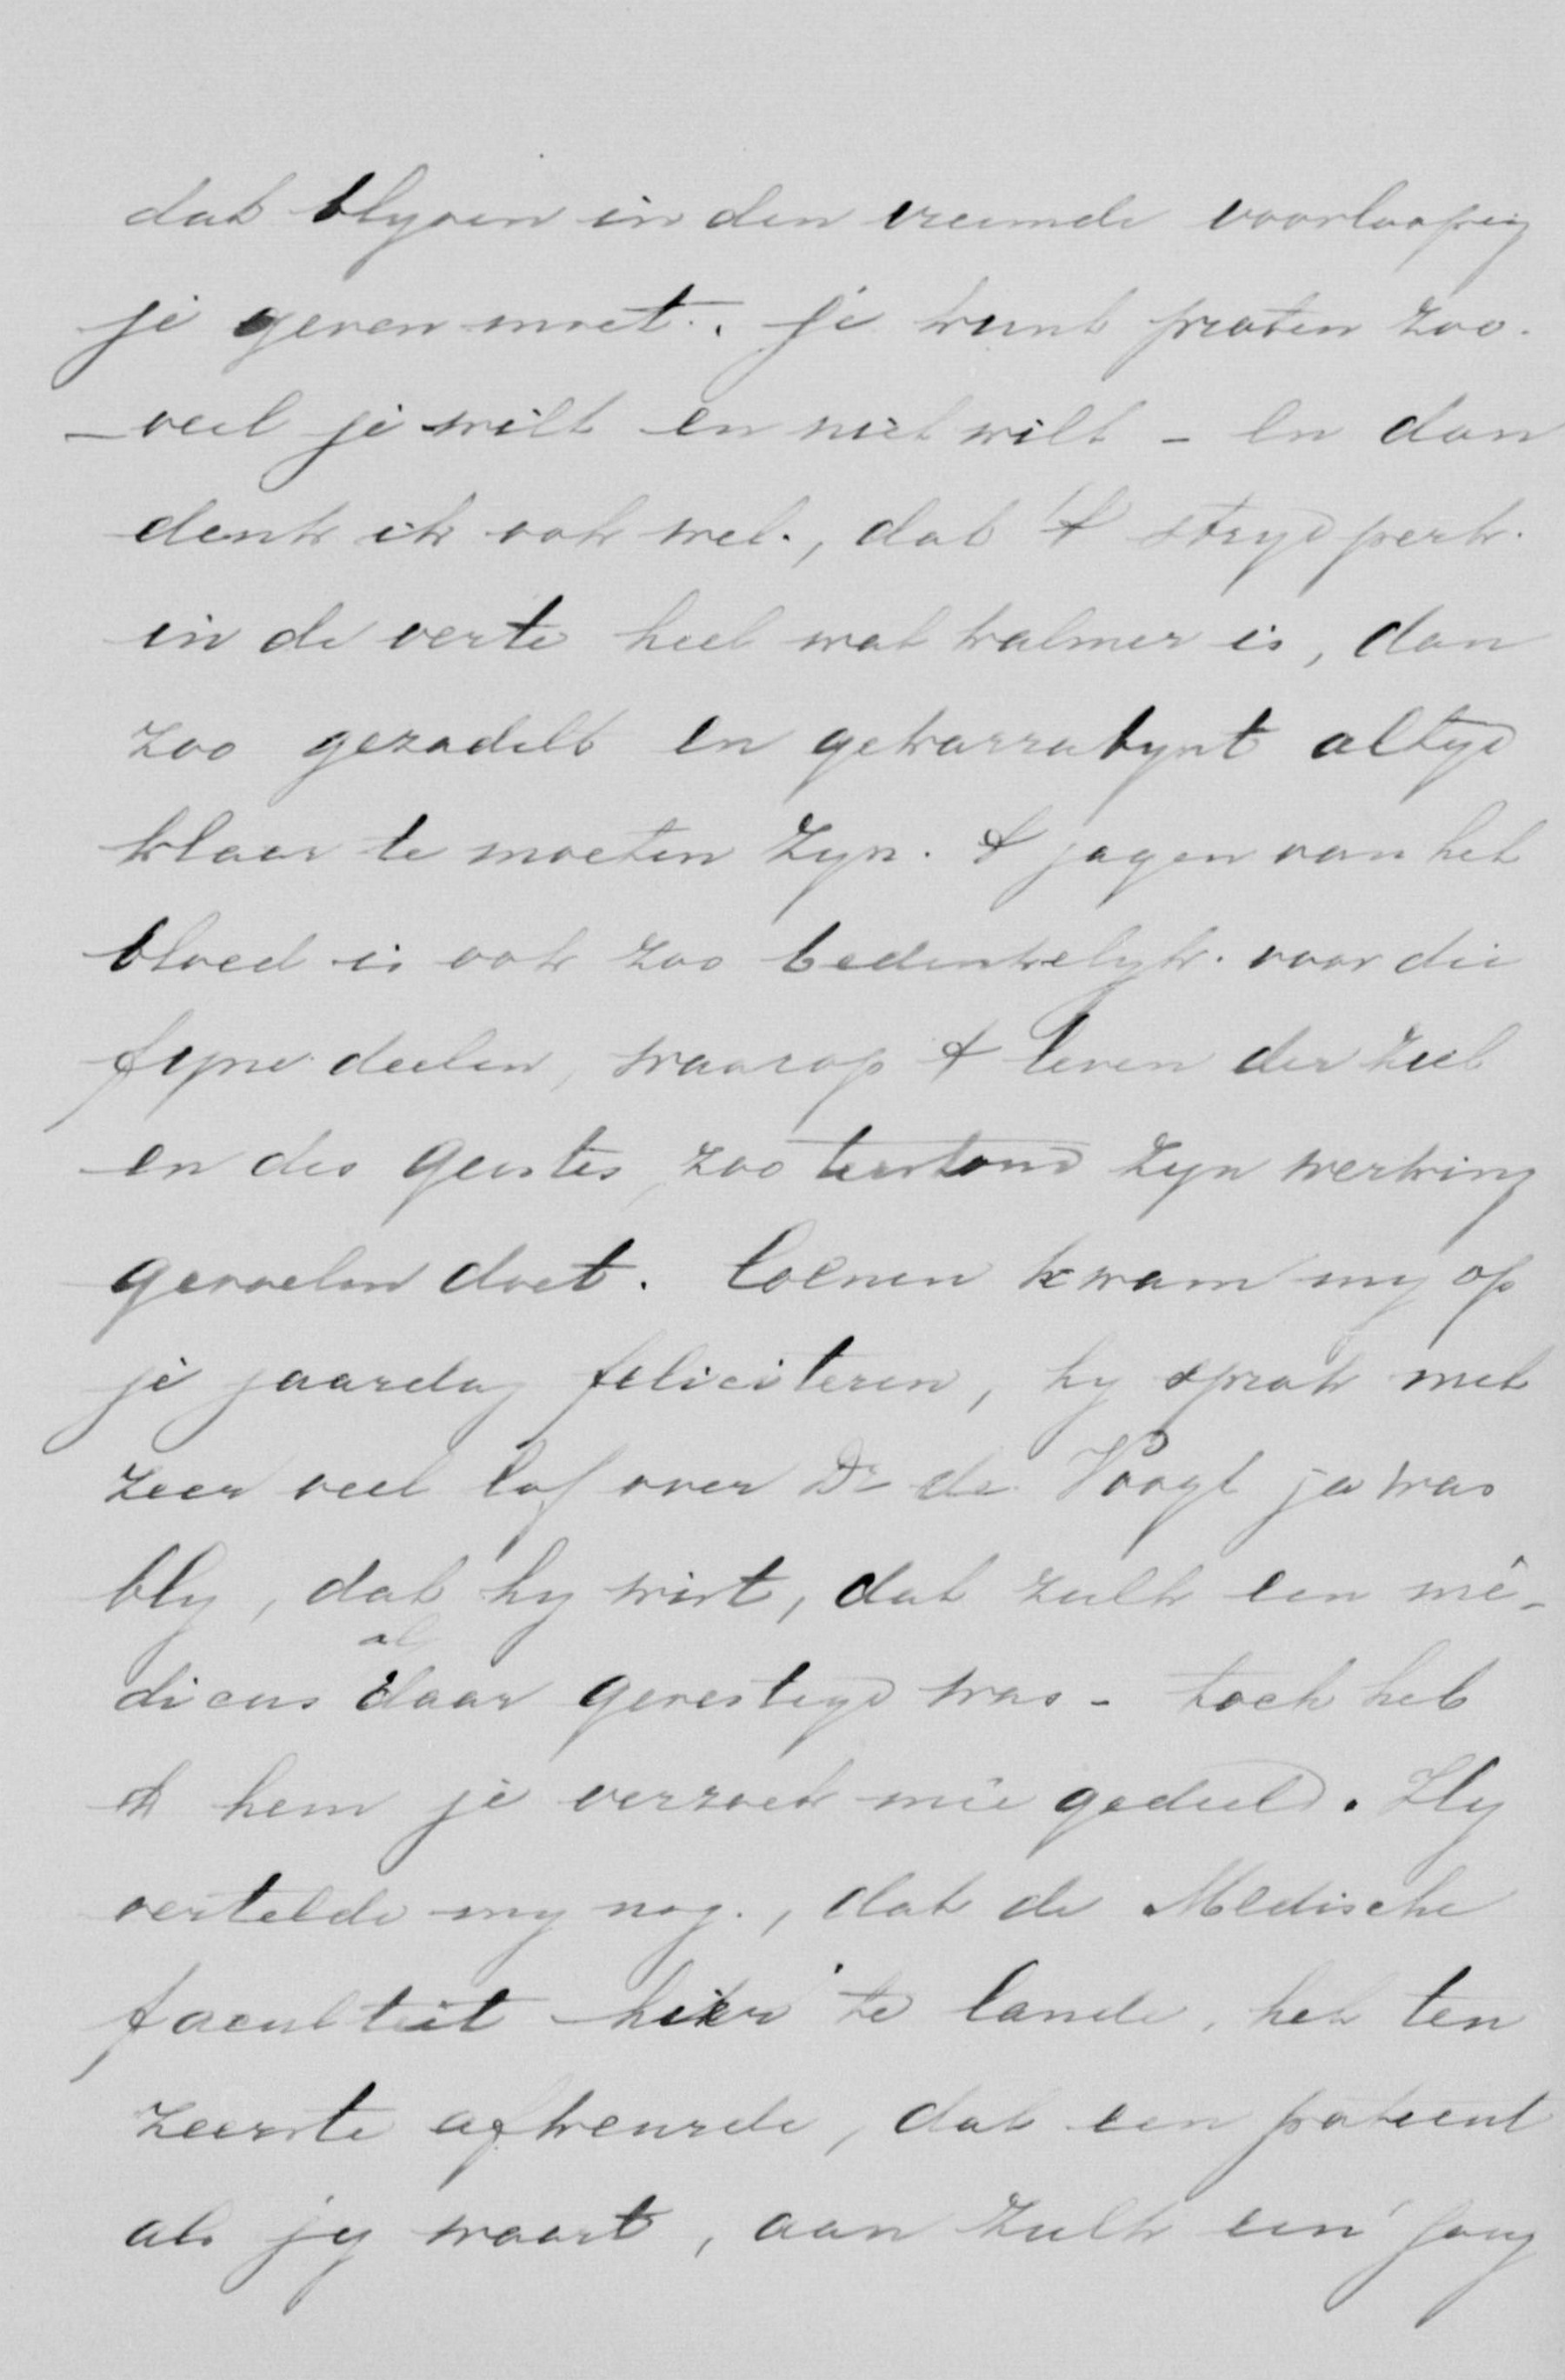 dat blyven in den vreemde voorloopig
je geven moet. Je kunt praten zoo-
-veel je wilt en niet wilt - En dan
denk ik ook wel., dat 't strydperk.
in de verte heel wat kalmer is, dan
zoo gezadelt en gekarrabynt altyd
klaar te moeten zyn. 't jagen van het
bloed is ook zoo bedenkelyk. voor die
fyne deelen, waarop 't leven der ziel
en des geestes, zoo terstond zyn werking
gevoelen doet. Coenen kwam my op
je jaardag feliciteren, hy sprak met
zeer veel lof over Dr de Voogt ja was
bly, dat hy wist, dat zulk een mé-
dicus aldaar gevestigd was - toch heb
ik hem je verzoek meê gedeeld. Hy
vertelde my nog., dat de Medische
faculteit hier te lande, het ten
zeerste afkeurde, dat een patient
als jy waart, aan zulk een jong